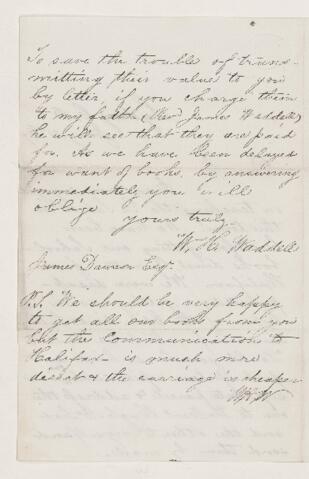 To save the trouble of trans-
mitting their value to you
by letter, if you charge them
to my father (Revd James Waddell)
he will see that they are paid
for. As we have been delayed
for want of books, by answering
immediately you will
oblige
yours truly
W. H. Waddell
James Dawson Esqr.
P.S. We should be very happy
to get all our books from you
but the Communication to
Halifax is much more
direct & the carriage is cheaper
WHW